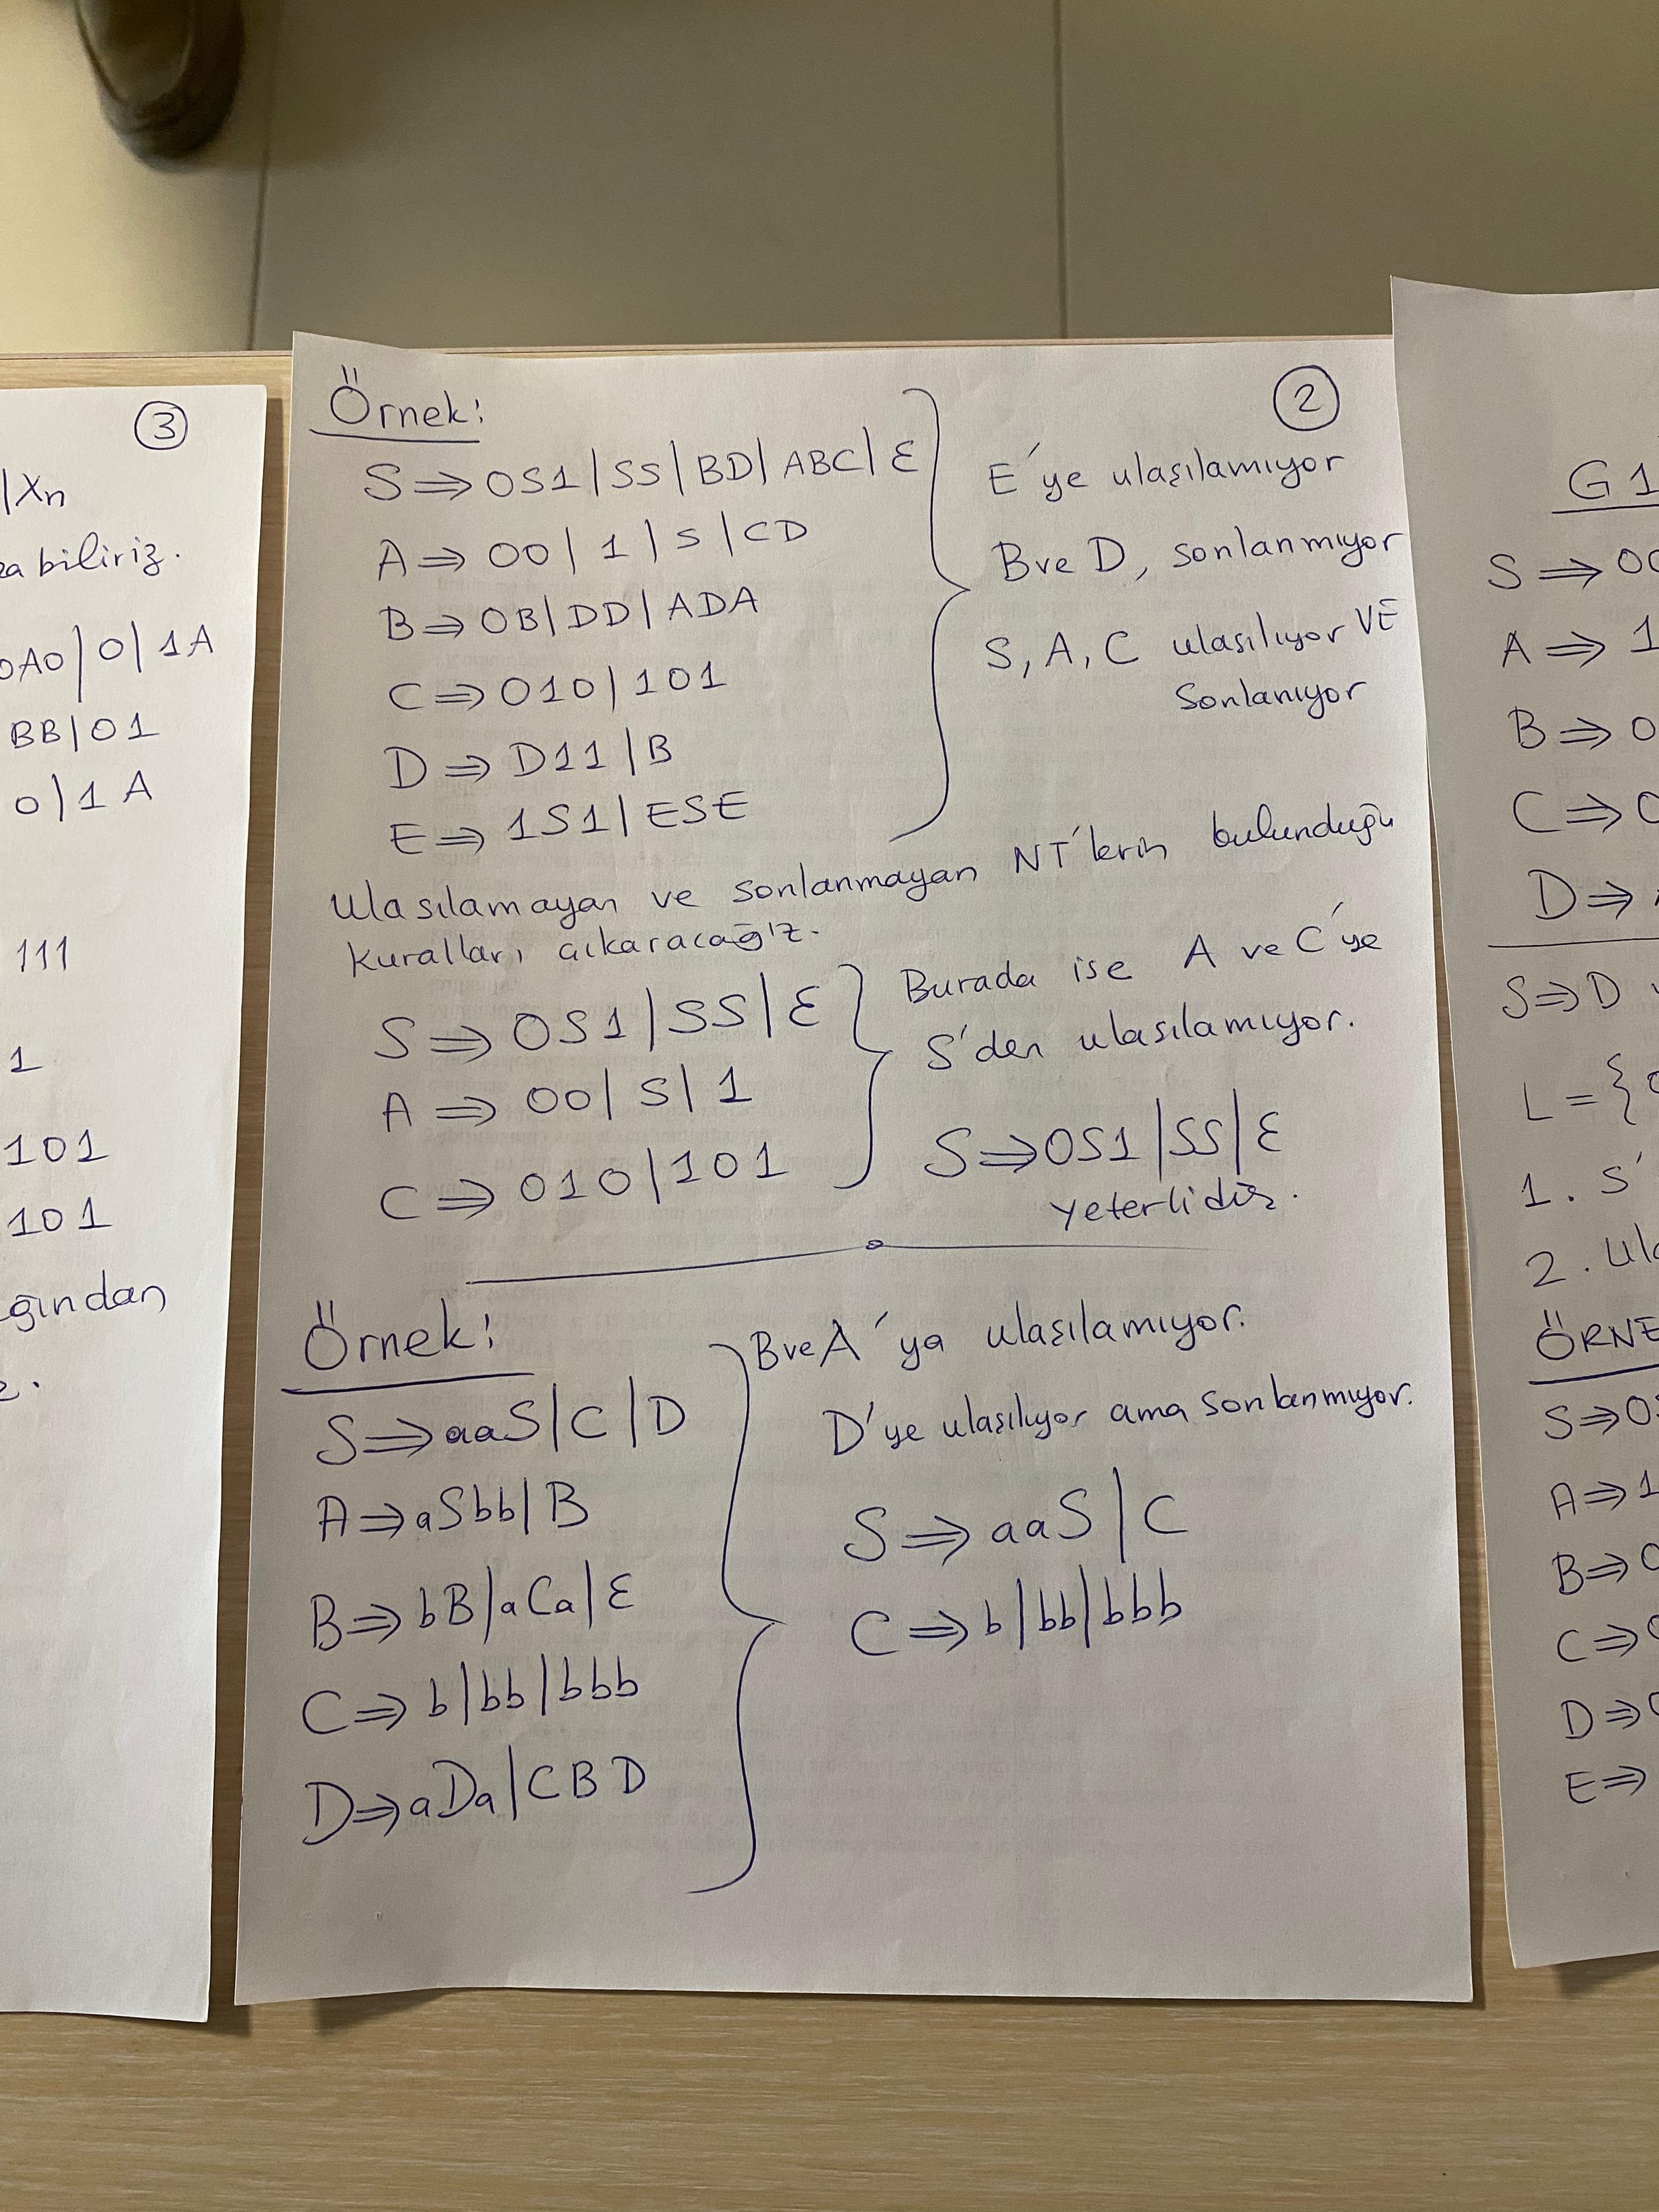 ③
|Xn
biliriz.
0A0|0|1A
BB|01
0|1A
111
1
101
101
ğından
②
Örnek:
S ⇒ 0S1|SS|BD|ABC|ε
A ⇒ 00|1|S|CD
B ⇒ 0B|DD|ADA
C ⇒ 010|101
D ⇒ D11|B
E ⇒ 1S1|ESE
E'ye ulaşılamıyor
B ve D, sonlanmıyor
S, A, C ulaşılıyor VE
Sonlanıyor
Ulaşılamayan ve sonlanmayan NT'lerin bulunduğu
kuralları çıkaracağız.
S ⇒ 0S1|SS|ε
A ⇒ 00|S|1
C ⇒ 010|101
Burada ise A ve C'ye
S'den ulaşılamıyor.
S ⇒ 0S1|SS|ε
yeterlidir.
Örnek:
S ⇒ aaS|C|D
A ⇒ aSbb|B
B ⇒ bB|aCa|ε
C ⇒ b|bb|bbb
D ⇒ aDa|CBD
B ve A'ya ulaşılamıyor.
D'ye ulaşılıyor ama sonlanmıyor.
S ⇒ aaS|C
C ⇒ b|bb|bbb
G1
S ⇒ 0
A ⇒ 1
B ⇒ 0
C ⇒ 0
D ⇒
S ⇒ D
L = {
1. S'
2. Ul
ÖRNE
S ⇒ 0
A ⇒ 1
B ⇒ 0
C ⇒ 0
D ⇒ 0
E ⇒